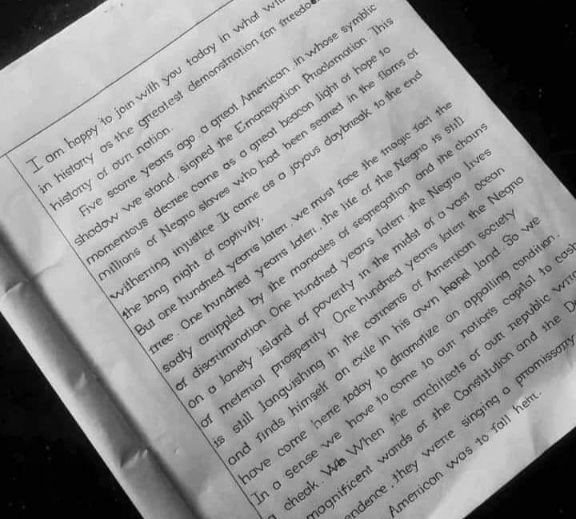 I am happy to join with you today in what
in history as the greatest demonstration for freedo
history of our nation.
Five score years ago, a great American in whose symblic
shadow we stand, signed the Emancipation Proclamation. This
momentous decree came as a great beacon light of hope to
millions of Negro slaves who had been seared in the flams of
witherring injustice. It came as a joyous daybreak to the end
the long night of captivity.
But one hundred years later, we must face the tragic fact the
free. One hundred years later, the life of the Negro is still
sadly crrippled by the manacles of segregation and the chains
of discrimination. One hundred years later, the Negro lives
on a lonely island of poverty in the midst of a vast ocean
of meterial prosperity. One hundred years later the Negro
is still languishing in the corners of American society
and finds himself an exile in his own land. So we
have come here today to dramatize an appalling condition.
In a sense we have to come to our nation's capital to cash
a cheak. When the architects of our republic
magnificent words of the Constitution and the D
endence, they were singing a promissory
American was to fall heir.